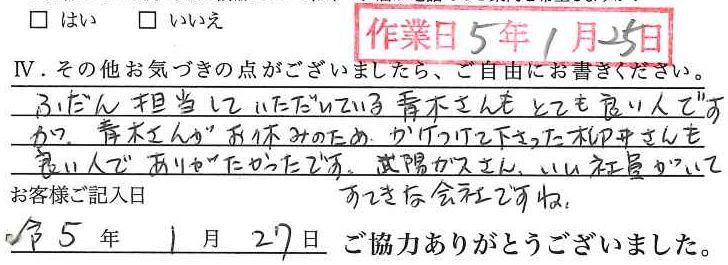 □ はい □ いいえ
作業日 5年1月25日
Ⅳ．その他お気づきの点がございましたら、ご自由にお書きください。
ふだん担当していただいている青木さんもとても良い人です
が、青木さんがお休みのため かけつけて下さった柳井さんも
良い人でありがたかったです。武陽ガスさん、いい社員がいて
すてきな会社ですね。
お客様ご記入日
令5年 1月 27日 ご協力ありがとうございました。